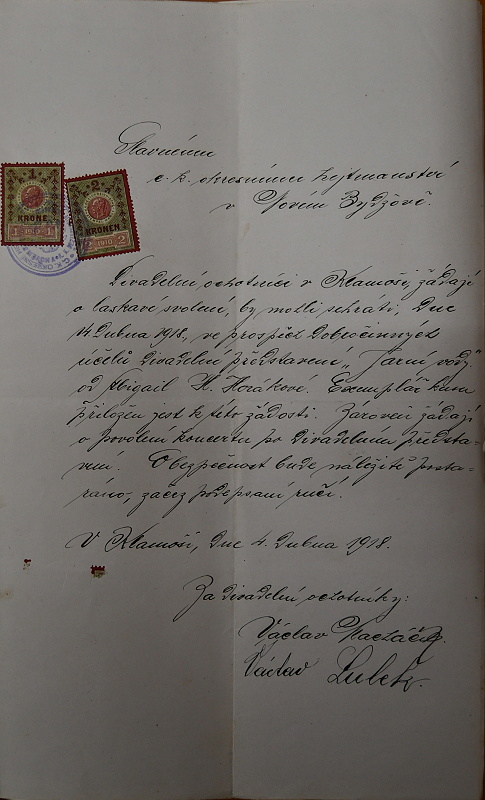 Slavnému
c. k. okresnímu hejtmanství
v Novém Bydžově.
1
KRONE
1 1910 1
2
KRONEN
2 1910 2
Divadelní ochotníci v Klamoši, žádají
o laskavé svolení, by mohli sehráti, dne
14 dubna 1918, ve prospěch dobročinných
účelů divadelní představení „Jarní vody"
od Abigail H. Horákové. Exemplář kusu
přiložen jest k této žádosti. Zároveň žádají
o povolení koncertu po divadelním předsta-
vení. O bezpečnost bude náležitě posta-
ráno, začež podepsaní ručí.
V Klamoši, dne 4. dubna 1918.
Za divadelní ochotníky:
Václav
Václav